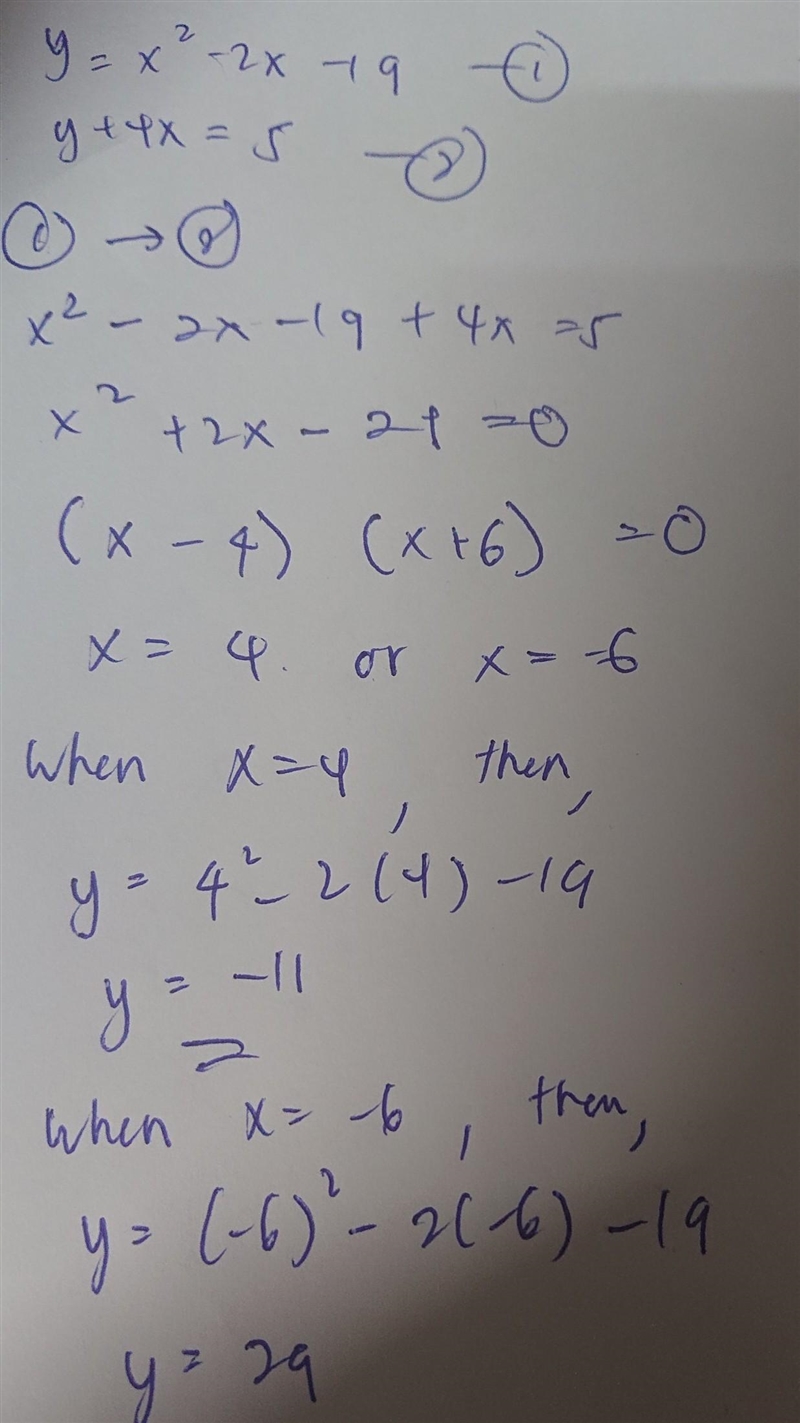 y = x² - 2x - 19 — ①
y + 4x = 5 — ②
① → ②
x² - 2x - 19 + 4x = 5
x² + 2x - 24 = 0
(x - 4) (x + 6) = 0
x = 4. or x = -6
When x = 4, then,
y = 4² - 2(4) - 19
y = -11
When x = -6, then,
y = (-6)² - 2(-6) - 19
y = 29